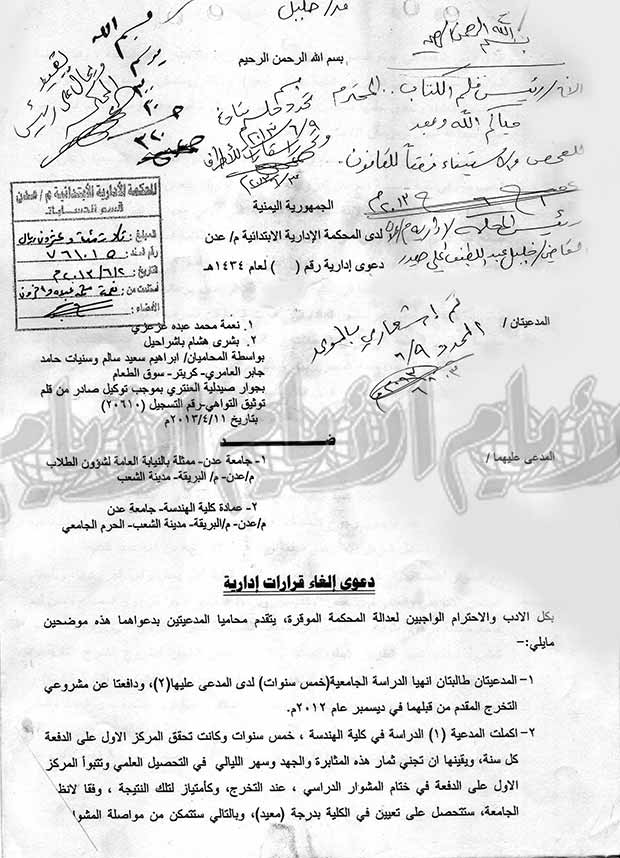 بسم الله الرحمن الرحيم
بسم الله الرحمن الرحيم
الاخ/ رئيس قلم الكتاب .. المحترم
حياكم الله وبعد
للفحص والاستيفاء وفقاً للقانون.
رئيس المحكمة الإدارية م/عدن
القاضي/ خليل عبد اللطيف علي حيدر
بسم الله
المحكمة الإدارية الابتدائية م/ عدن
قسم الحسابات
المبلغ:
رقم السند: ٧٦١٠١٥
التاريخ: ٢٠١٣/٦/٢م
استلمت من:
الأمضاء:
الجمهورية اليمنية
لدى المحكمة الإدارية الابتدائية م/ عدن
دعوى إدارية رقم ( ) لعام ١٤٣٤هـ
تم إشعاري بالموعد
المحدد ٦/٩
المدعيتان /
١. نعمة محمد عبده عزعزي
٢. بشرى هشام باشراحيل
بواسطة المحاميان/ ابراهيم سعيد سالم وسنيات حامد
جابر العامري- كريتر- سوق الطعام
بجوار صيدلية العنتري بموجب توكيل صادر من قلم
توثيق التواهي-رقم التسجيل (٢٠٦١٠)
بتاريخ ٢٠١٣/٤/١١م
ضـــد
المدعى عليهما/
١- جامعة عدن- ممثلة بالنيابة العامة لشؤون الطلاب
م/عدن- م/ البريقة- مدينة الشعب
٢- عمادة كلية الهندسة- جامعة عدن
م/عدن- م/البريقة- مدينة الشعب- الحرم الجامعي
دعوى إلغاء قرارات إدارية
بكل الادب والاحترام الواجبين لعدالة المحكمة الموقرة، يتقدم محاميا المدعيتين بدعواهما هذه موضحين
مايلي:-
١- المدعيتان طالبتان انهيا الدراسة الجامعية(خمس سنوات) لدى المدعى عليها(٢)، ودافعتا عن مشروعي
التخرج المقدم من قبلهما في ديسمبر عام ٢٠١٢م.
٢- اكملت المدعية (١) الدراسة في كلية الهندسة ، خمس سنوات وكانت تحقق المركز الاول على الدفعة
كل سنة، ويقينها ان تجني ثمار هذه المثابرة والجهد وسهر الليالي في التحصيل العلمي وتتبوأ المركز
الاول على الدفعة في ختام المشوار الدراسي ، عند التخرج، وكأمتياز لتلك النتيجة ، وفقا لانظ
الجامعة، ستتحصل على تعيين في الكلية بدرجة (معيد)، وبالتالي ستتمكن من مواصلة المشوا
الأيام الأيام